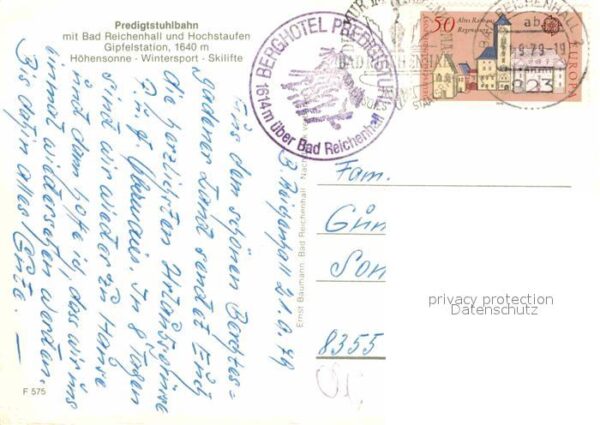 Predigtstuhlbahn
mit Bad Reichenhall und Hochstaufen
Gipfelstation, 1640 m
Höhensonne · Wintersport · Skilifte
BERGHOTEL PREDIGTSTUHL
1614 m über Bad Reichenhall
50 Altes Rathaus
Regensburg
EUROPA
REICHENHALL
823
B Reichenhall 21.9.79
Aus dem schönen Berchtes-
gadener Land sendet Euch
die herzlichsten Urlaubsgrüsse
In 8 Tagen
sind wir wieder zu Hause
und dann hoffe ich, dass wir uns
einmal wiedersehen werden.
Bis dahin alles Gute.
Ernst Baumann, Bad Reichenhall
F 575
Fam.
Gün
Son
8355
privacy protection
Datenschutz